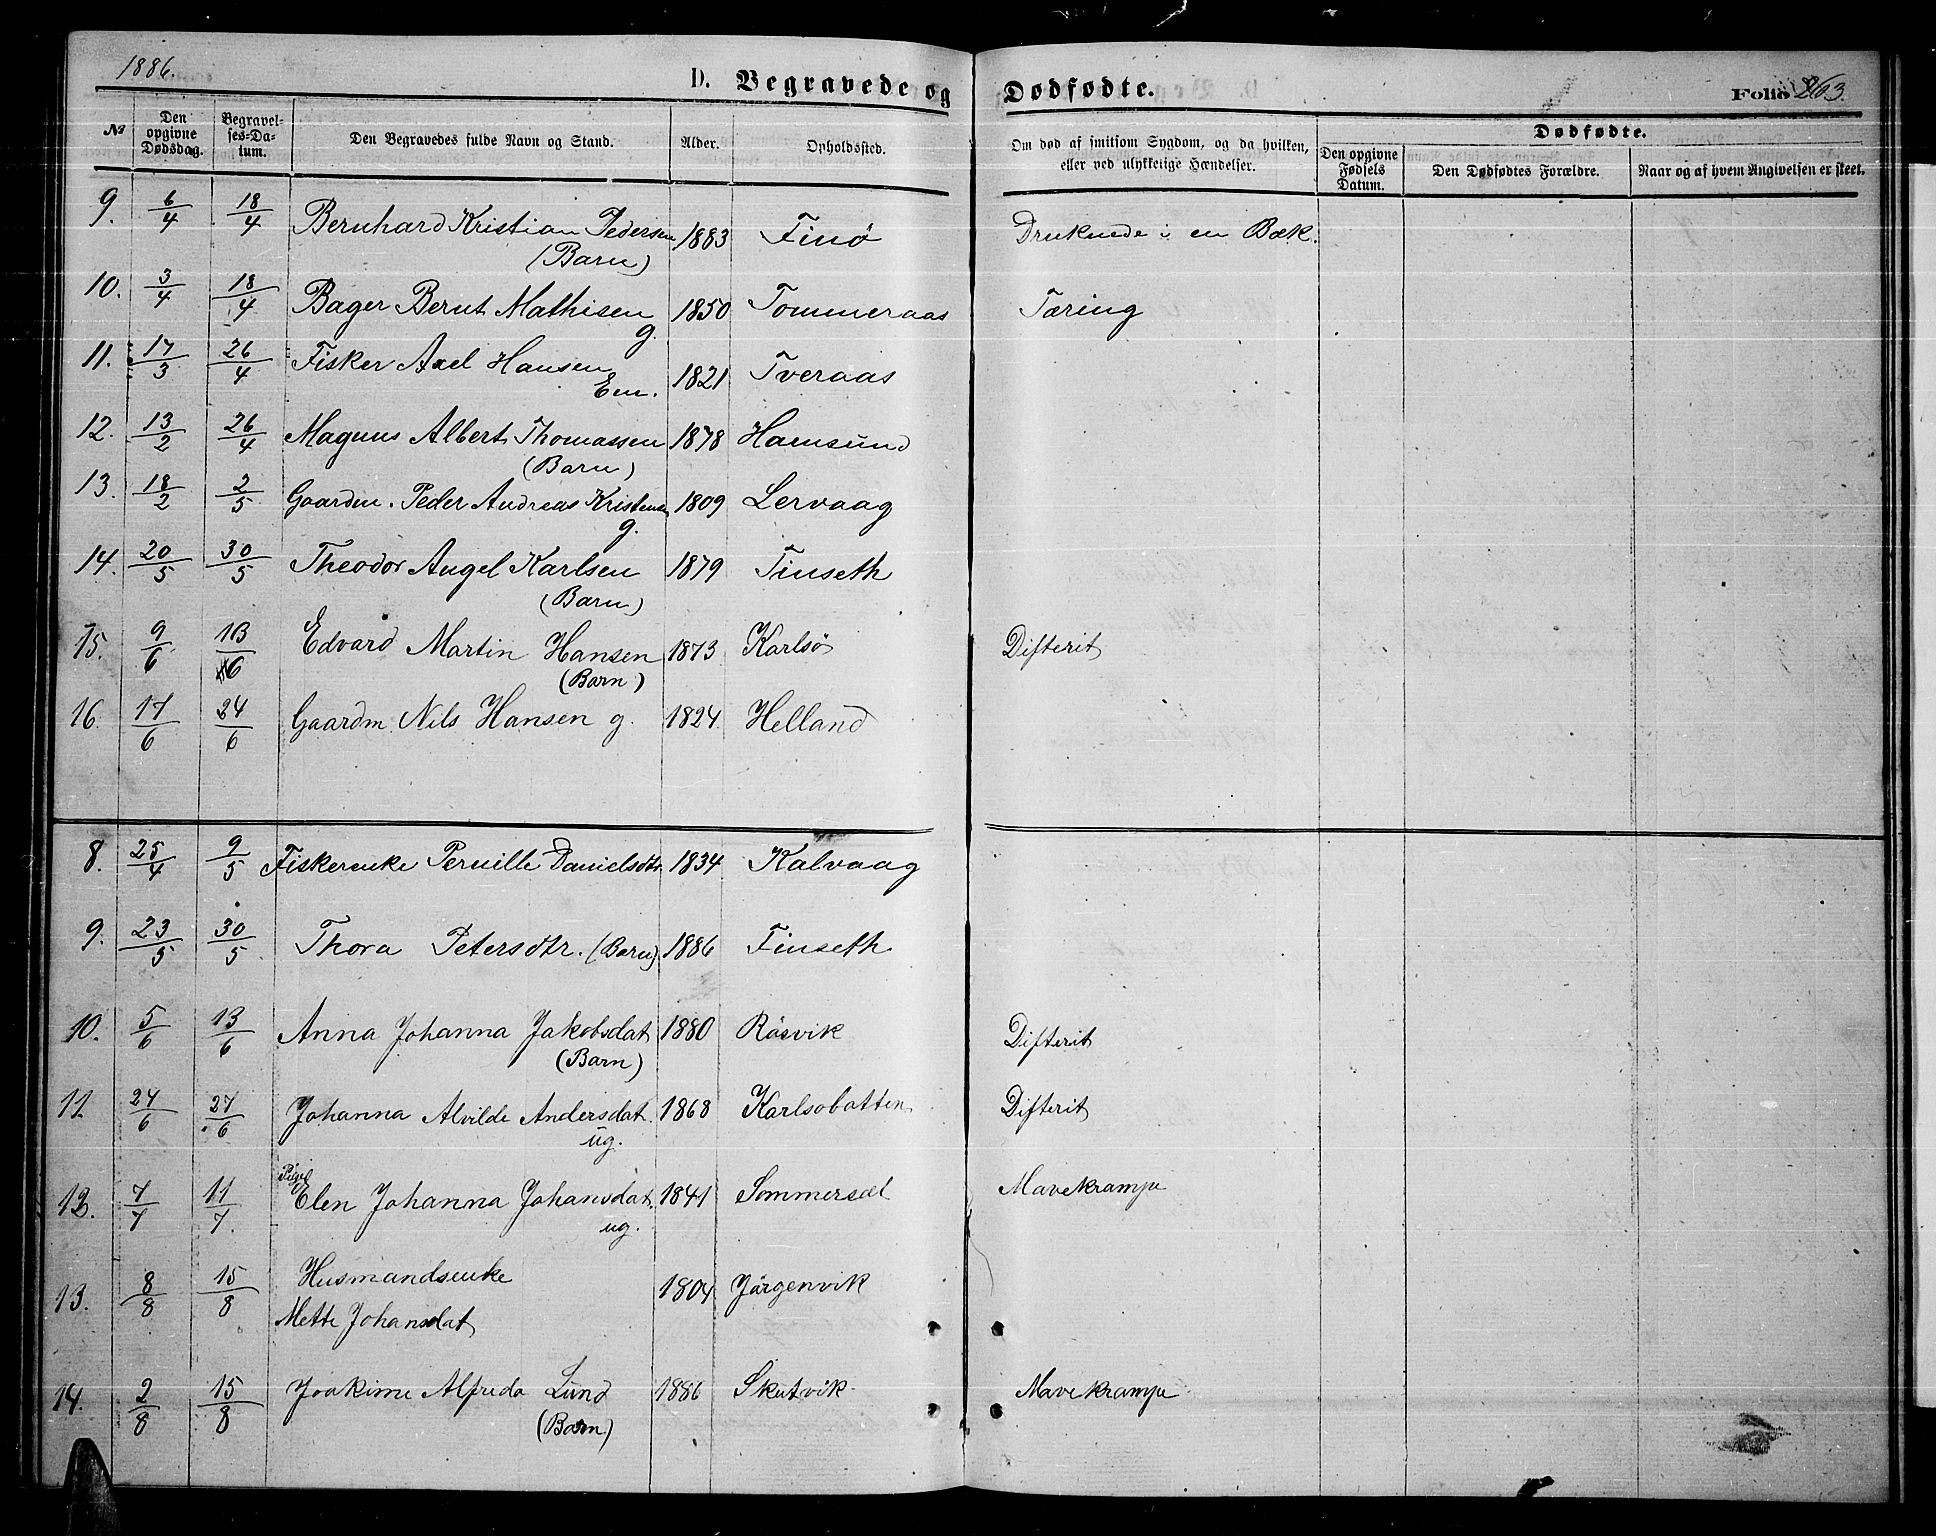 1886. D. Begravede og Dødfødte. Folio 263.
№ Den opgivne Dødsdag. Begravelses-Datum. Den Begravedes fulde Navn og Stand. Alder. Opholdssted. Om død af smitsom Sygdom, og da hvilken, eller ved ulykkelige Hændelser. Dødfødte.
Den opgivne Fødsels Datum. Den Dødfødtes Forældre. Naar og af hvem Angivelsen er skeet.
9. 6/4 18/4 Bernhard Kristian Pedersen 1883 Finø Druknede i en Bæk.
(Barn)
10. 3/4 18/4 Bager Bernt Mathisen 1850 Tommeraas Tæring
g.
11. 17/3 26/4 Fisker Axel Hansen 1821 Tveraas
Em.
12. 13/2 26/4 Magnus Albert Thomassen 1878 Hamsund
(Barn)
13. 18/2 2/5 Gaardm. Peder Andreas Kristensen 1809 Lervaag
g.
14. 20/5 30/5 Theodor Angel Karlsen 1879 Finseth
(Barn)
15. 9/6 13/6 Edvard Martin Hansen 1873 Karlsø Difterit
(Barn)
16. 17/6 24/6 Gaardm Nils Hansen g. 1824 Helland
8. 25/4 9/5 Fiskerenke Pernille Danielsdtr 1834 Kalvaag
9. 23/5 30/5 Thora Petersdtr. (Barn) 1886 Finseth
10. 5/6 13/6 Anna Johanna Jakobsdat 1880 Røsvik Difterit
(Barn)
11. 24/6 27/6 Johanna Alvilde Andersdat. 1868 Karlsobotten Difterit
ug.
12. 7/7 11/7. Pige Elen Johanna Johansdat. 1841 Sommersæl Mavekrampe
ug.
13. 8/8 15/8 Husmandsenke 1804 Jørgenvik
Mette Johansdat
14. 2/8 15/8 Joakime Alfreda Lund 1886 Skutvik Mavekrampe
(Barn)